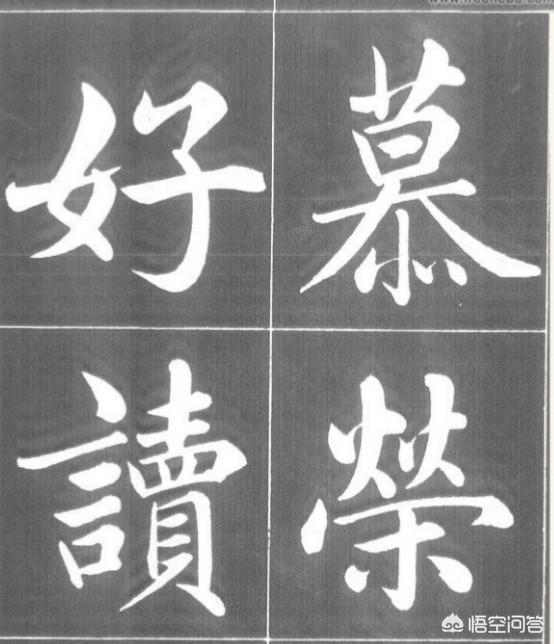 慕榮
好讀
悟空问答